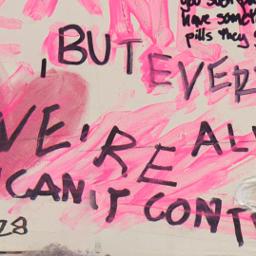 have somet
pills they
BUT EVER
WE'RE AL
CAN'T CONT
28